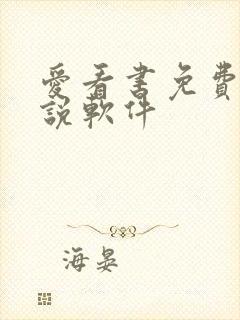 愛看書免費
說軟件
海晏